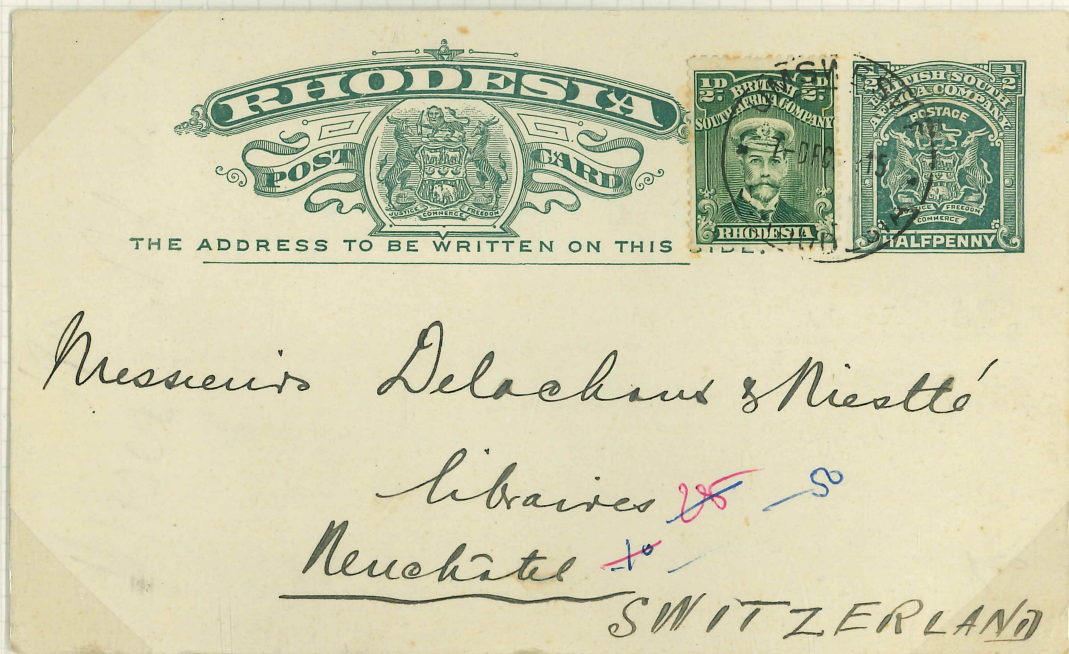 RHODESIA
POST CARD
JUSTICE COMMERCE FREEDOM
THE ADDRESS TO BE WRITTEN ON THIS SIDE.
½D. ½D.
BRITISH
SOUTH AFRICA COMPANY
RHODESIA
½ ½
BRITISH SOUTH
AFRICA COMPANY
POSTAGE
JUSTICE FREEDOM
COMMERCE
HALFPENNY
7-DEC 15
Messieurs Delachaux & Niestlé
libraires 25 50
Neuchâtel 10
SWITZERLAND